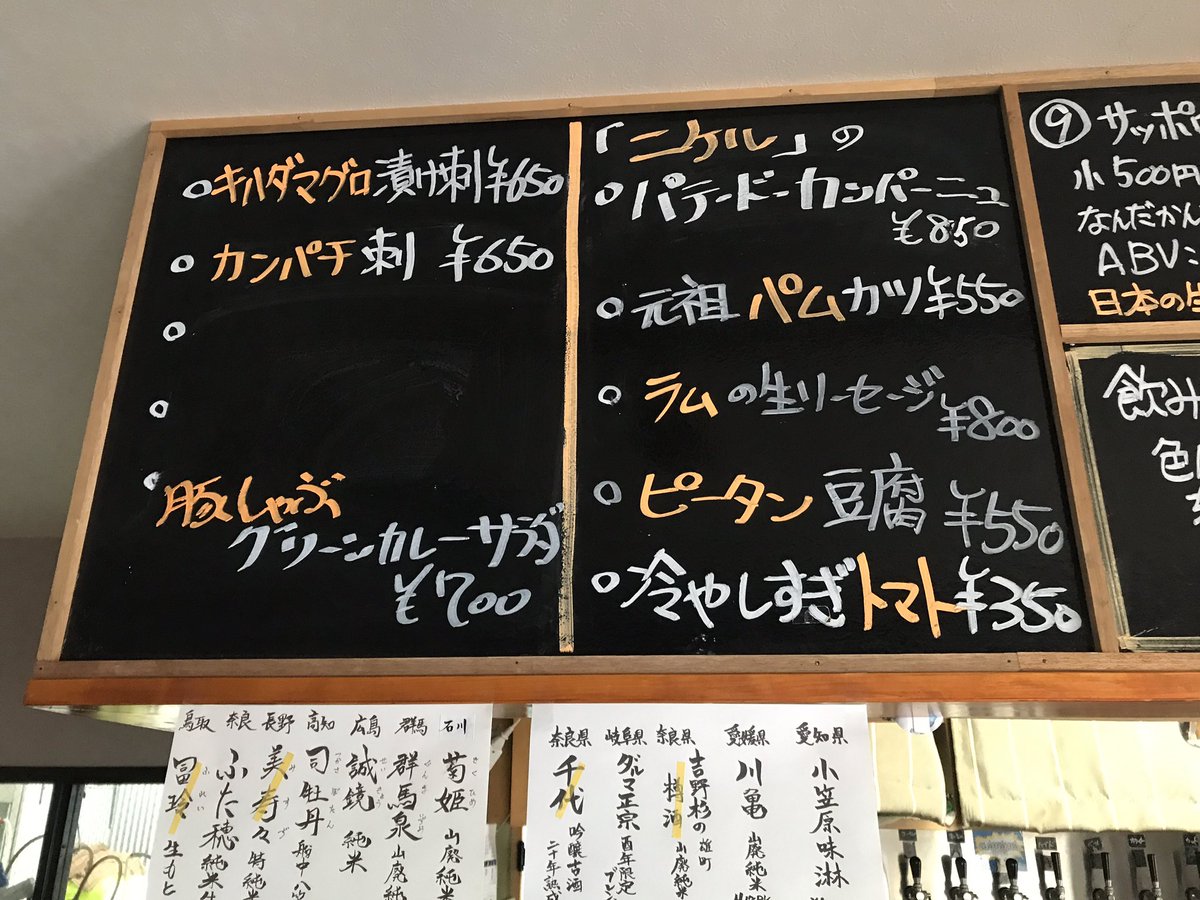 キハダマグロ漬け刺¥650
カンパチ刺 ¥650
豚しゃぶ
グリーンカレーサラダ
¥700
「ニケル」の
パテードーカンパーニュ
¥850
元祖 ハムカツ ¥550
ラムの生ソーセージ
¥800
ピータン豆腐 ¥550
冷やしすぎトマト ¥350
⑨ サッポ
小500円
なんだかん
ABV:
日本の生
飲み
色
石川
菊姫
山廃純
群馬
群馬泉
山廃純
広島
誠鏡
純米
高知
司牡丹
船中八
長野
美寿々
特純米
奈良
ふた穂
純米生
鳥取
冨玲
生もと
愛知県
小笠原味淋
愛媛県
川亀
山廃純米
奈良県
吉野杉の
樽酒
雄町
山廃純米
岐阜県
ダルマ正宗
酉年限定
ブレン
奈良県
千代
吟醸古酒
二十年熟成